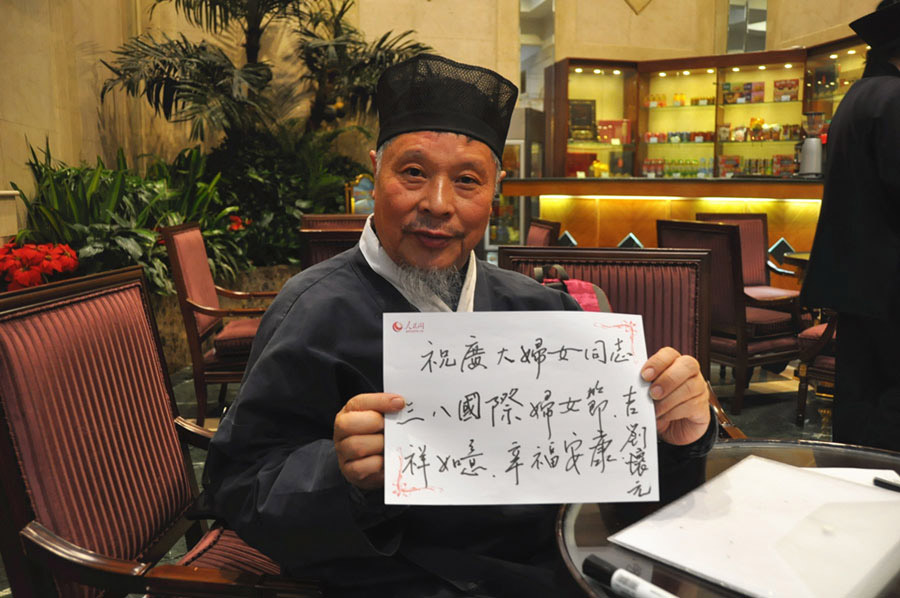 人民网
祝廣大婦女同志
三八國際婦女節.吉
祥如意.辛福安康
劉懷元